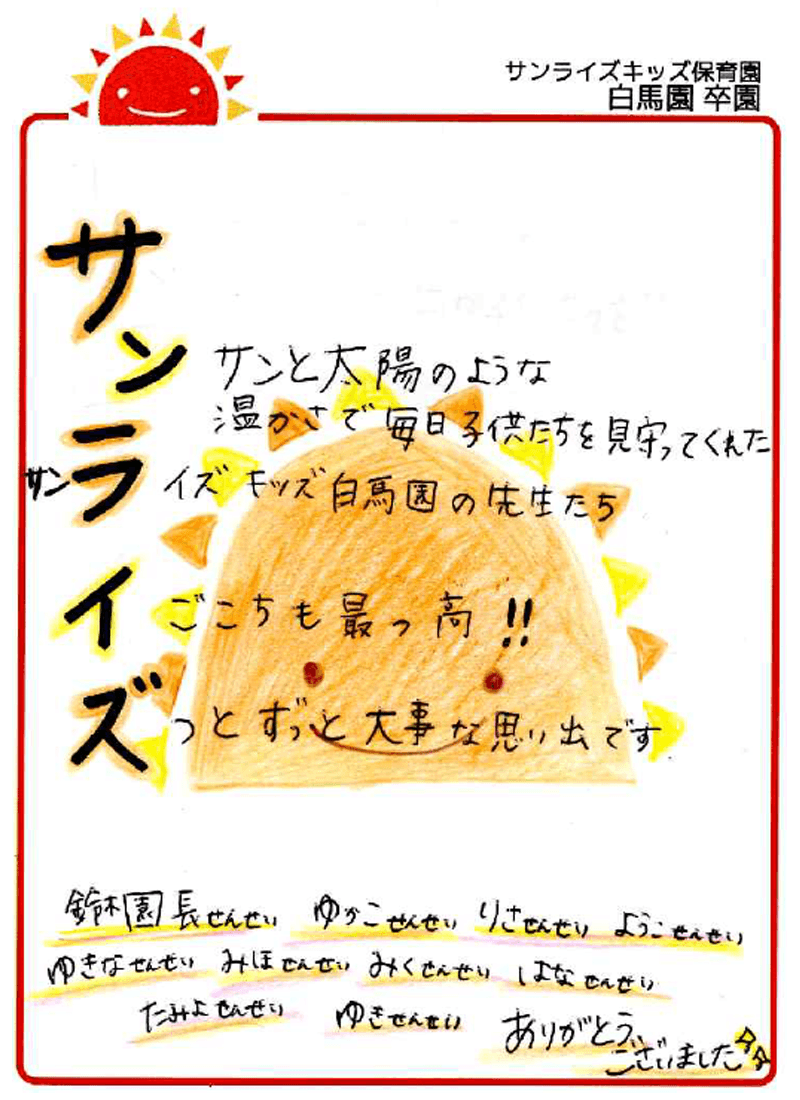 サンライズキッズ保育園
白馬園 卒園
サンと太陽のような
温かさで毎日子供たちを見守ってくれた
サンライズキッズ白馬園の先生たち
イごこちも最っ高!!
ズっとずっと大事な思い出です
鈴木園長せんせい ゆかこせんせい りさせんせい ようこせんせい
ゆきなせんせい みほせんせい みくせんせい はなせんせい
たみよせんせい ゆきせんせい ありがとう
ございました